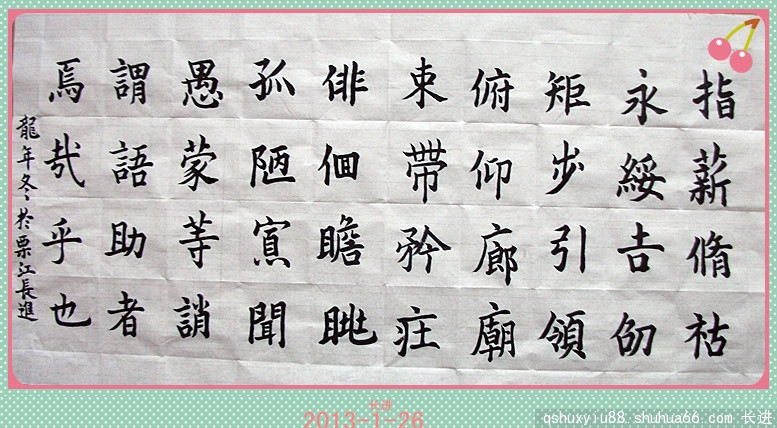 指薪脩祜
永綏吉劭
矩步引領
俯仰廊廟
束帶矜莊
俳佪瞻眺
孤陋寡聞
愚蒙等誚
謂語助者
焉哉乎也
龍年冬於栗江長進
长进
2013-1-26
qshuxyiu88.shuhua66.com 长进